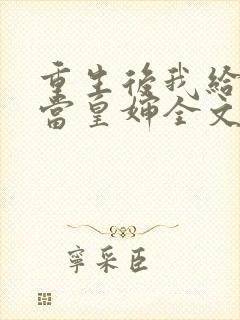 重生後我給
當皇婶全文
寧采臣